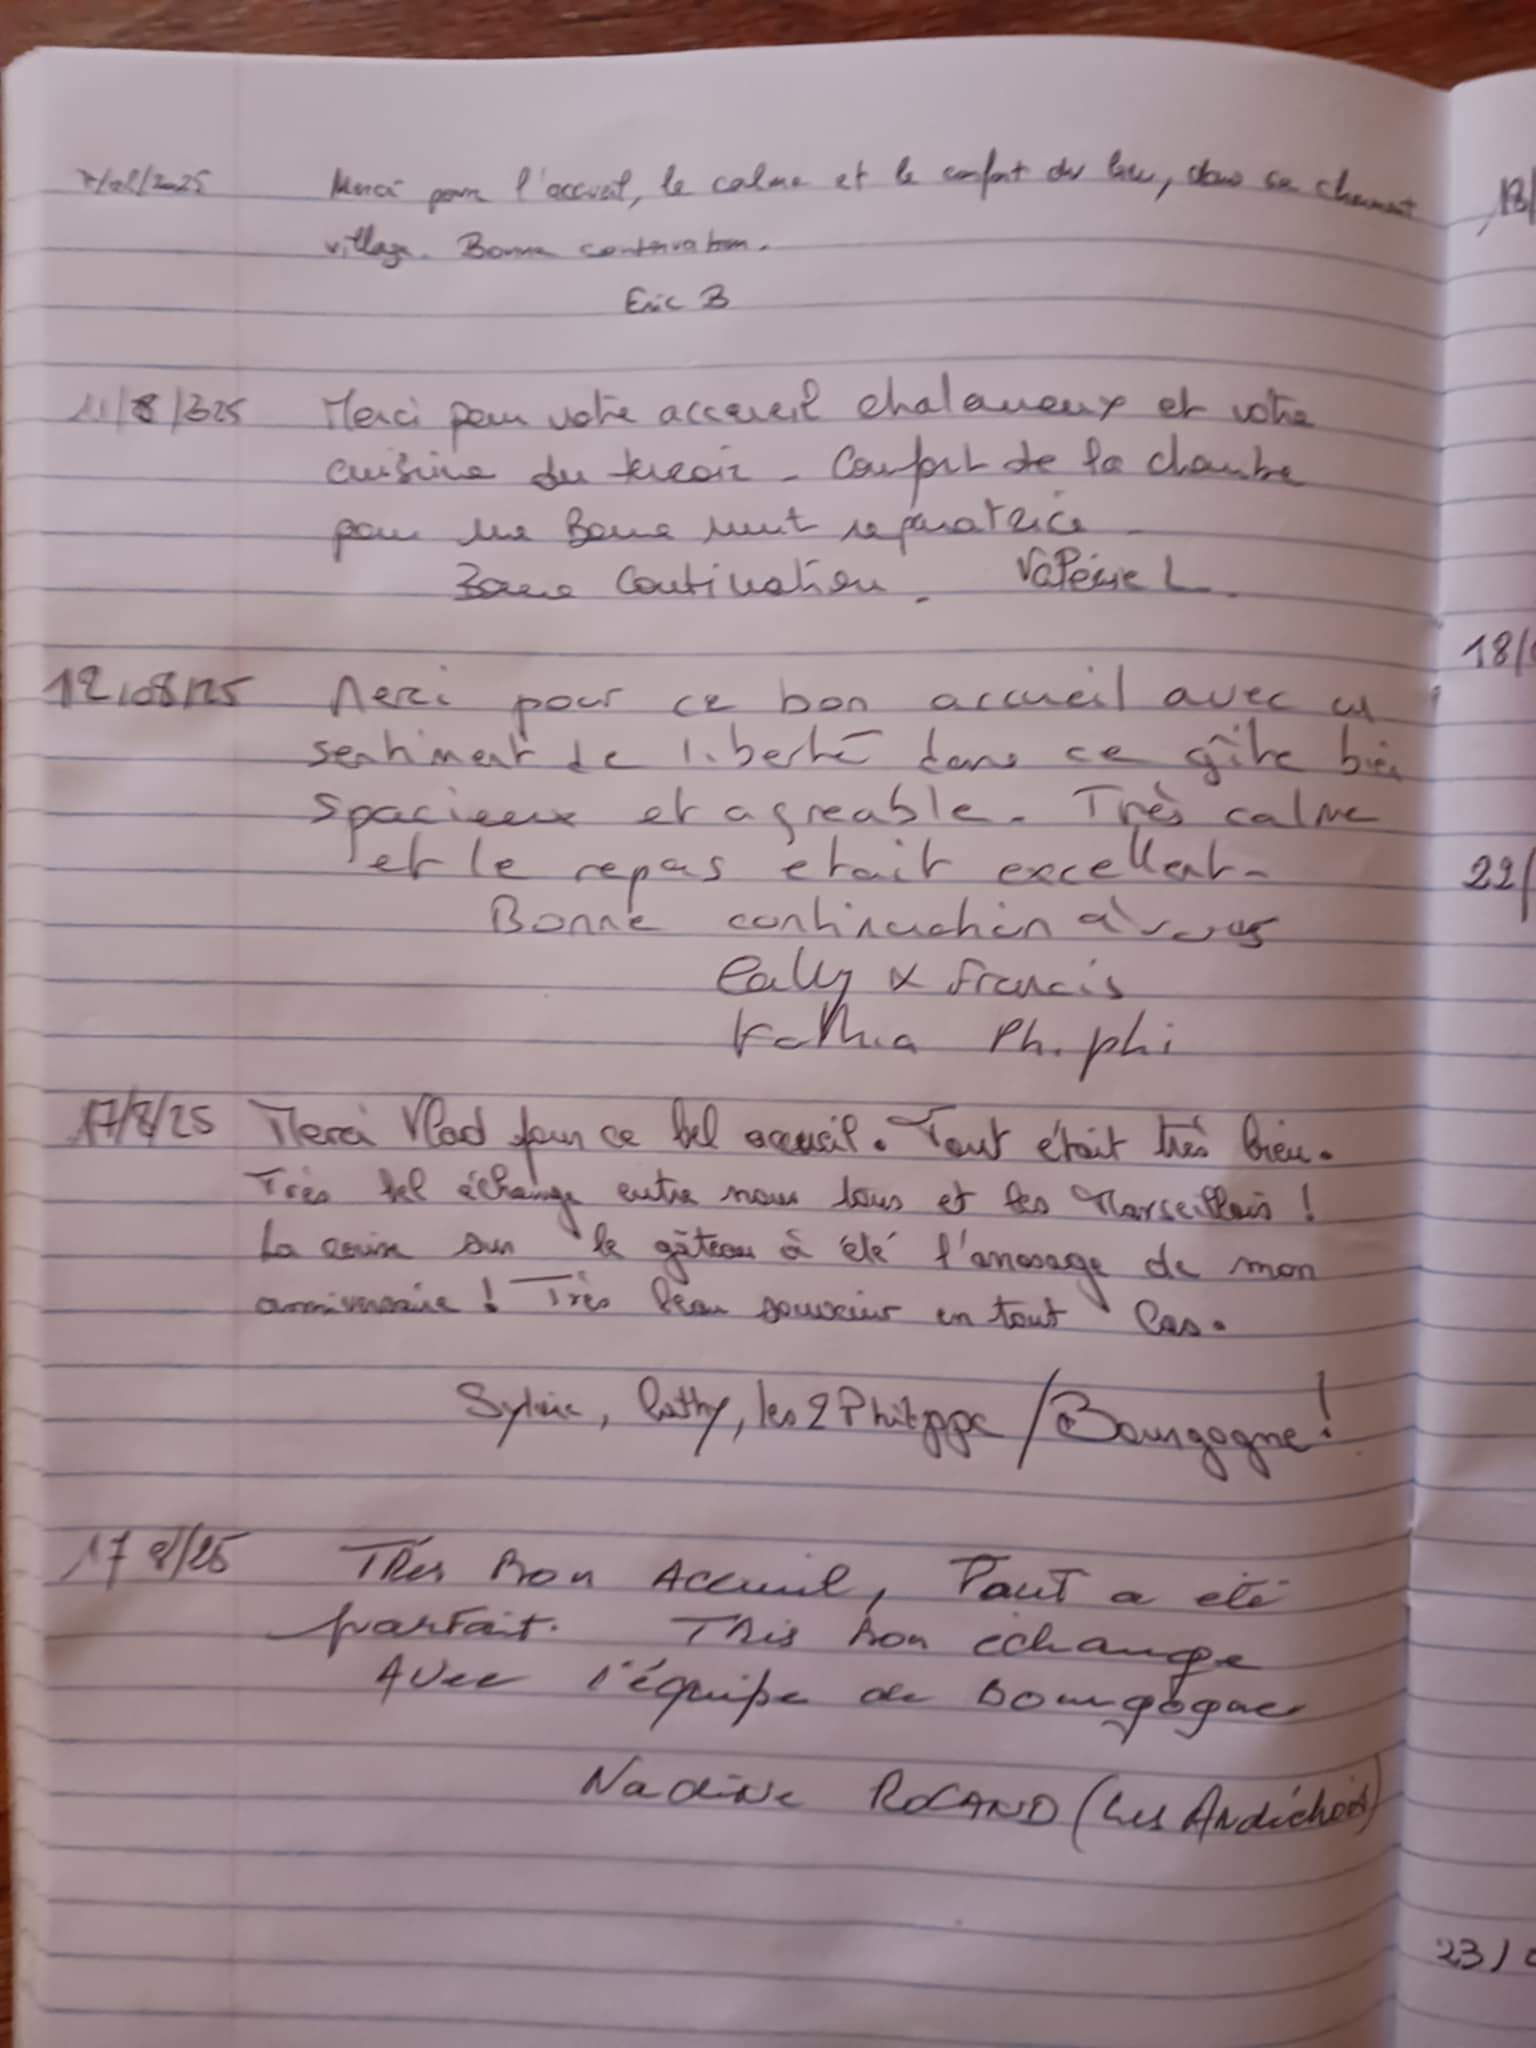 7/08/2025 Merci pour l'accueil, le calme et le confort du lieu, dans ce charmant
village. Bonne continuation.
Eric B
11/8/2025 Merci pour votre accueil chaleureux et votre
cuisine du terroir - Confort de la chambre
pour une Bonne nuit réparatrice -
Bonne Continuation. Valérie L.
12/08/25 Merci pour ce bon accueil avec un
sentiment de liberté dans ce gîte bien
spacieux et agreable. Très calme
et le repas etait excellent -
Bonne continuation à vous
Cathy & Francis
Kathia Ph. phi
17/8/25 Merci Vlad pour ce bel accueil. Tout était très bien.
Très bel échange entre nous tous et les Marseillais !
La cerise sur le gâteau à été l'arrosage de mon
anniversaire ! Très beau souvenir en tout cas.
Sylvie, Cathy, les 2 Philippe / Bourgogne !
17 8/25 Très Bon Acceuil, Tout a été
parfait. Très bon échange
Avec l'équipe de Bourgogne
Nadine ROLAND (Les Ardéchois)
18/
22/
23/